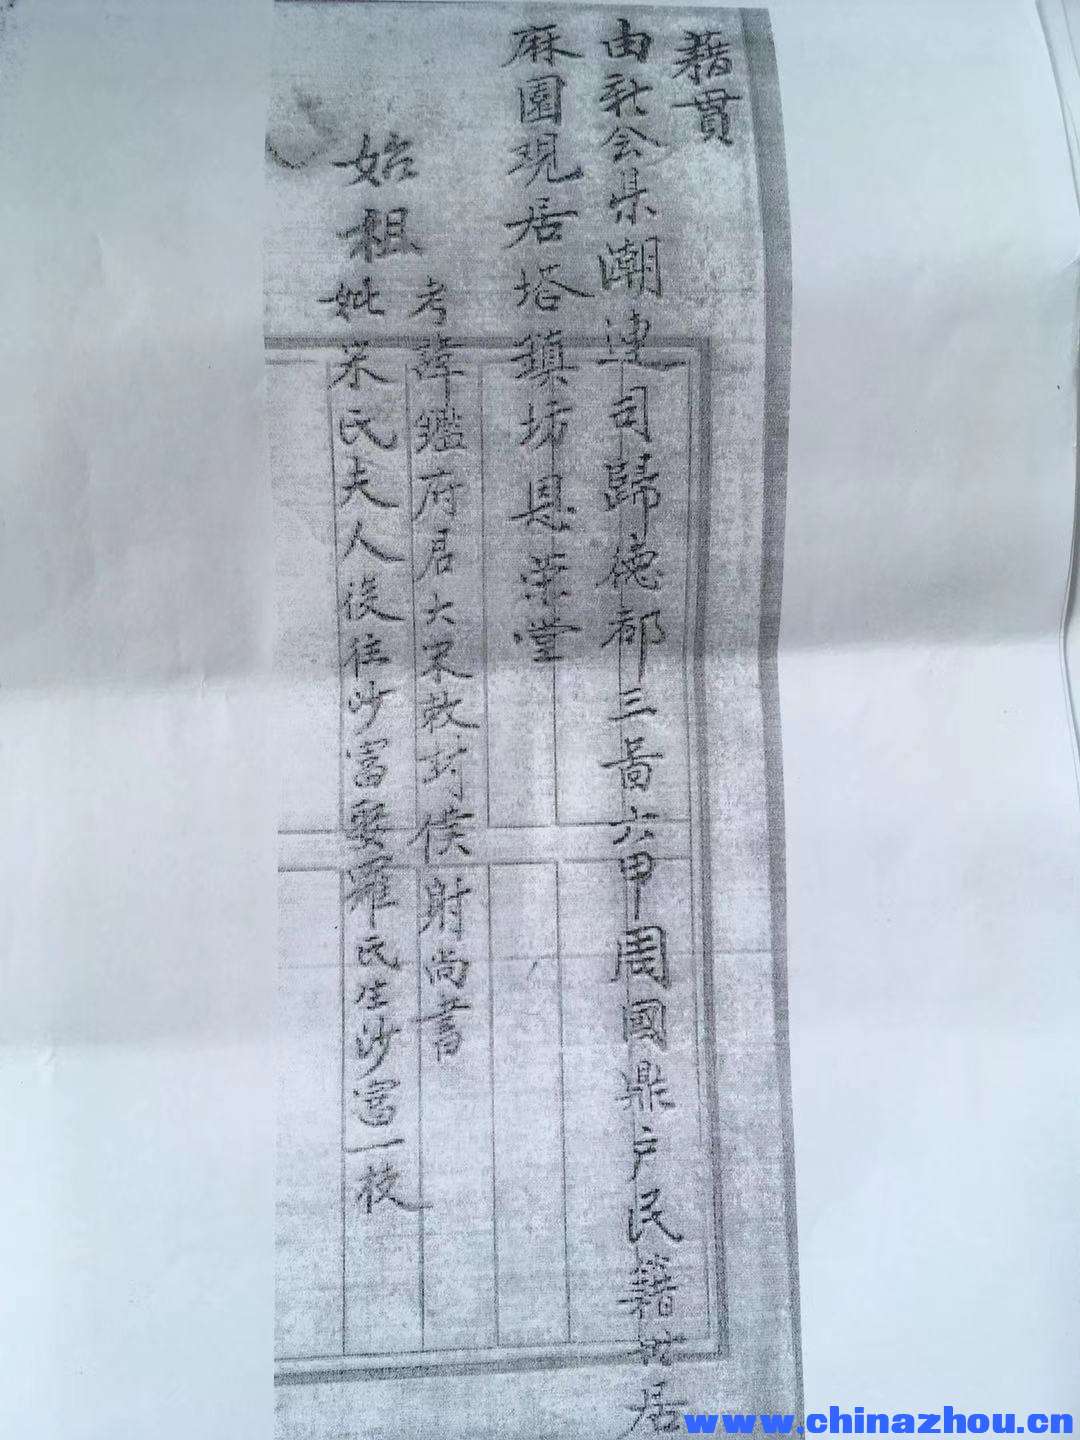 藉貫
由社会県潮連司歸德都三啚六甲周國鼎户民籍時居
麻園現居塔鎮坊恩荣堂
始祖
考諱鑑府君大宋敕封侯射尚書
妣宋氏夫人後往沙富娶羅氏生沙富一枝
www.chinazhou.cn